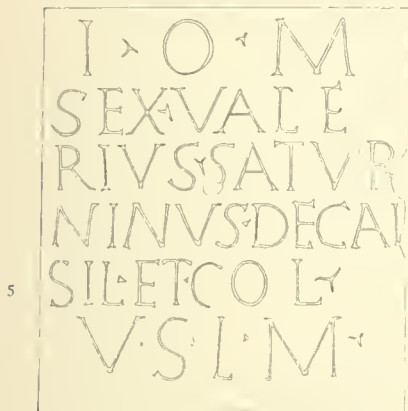 I · O · M
SEX·VALE
RIVS·SATVR
NINVS·DECAN
5 SIL·ET·COL·
V·S·L·M·